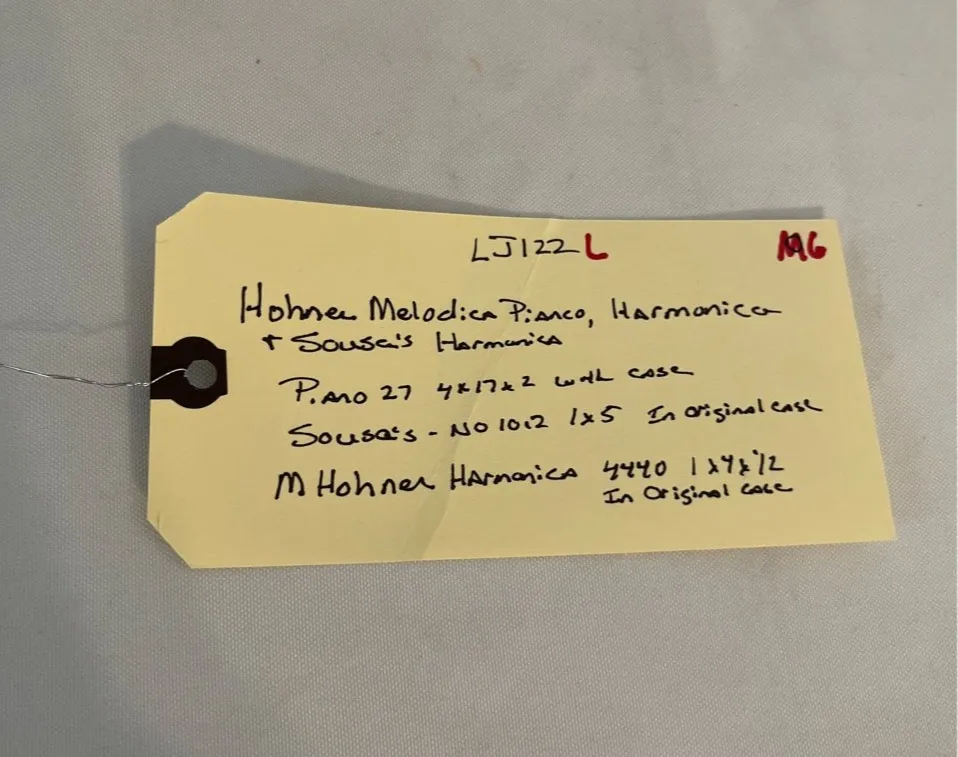 LJ122L MG
Hohner Melodica Pianco, Harmonica
+ Sousa's Harmonica
Piano 27 4x17x2 with case
Sousa's - No 1012 1x5 In Original case
M Hohner Harmonica 4440 1x4x1/2
In Original case